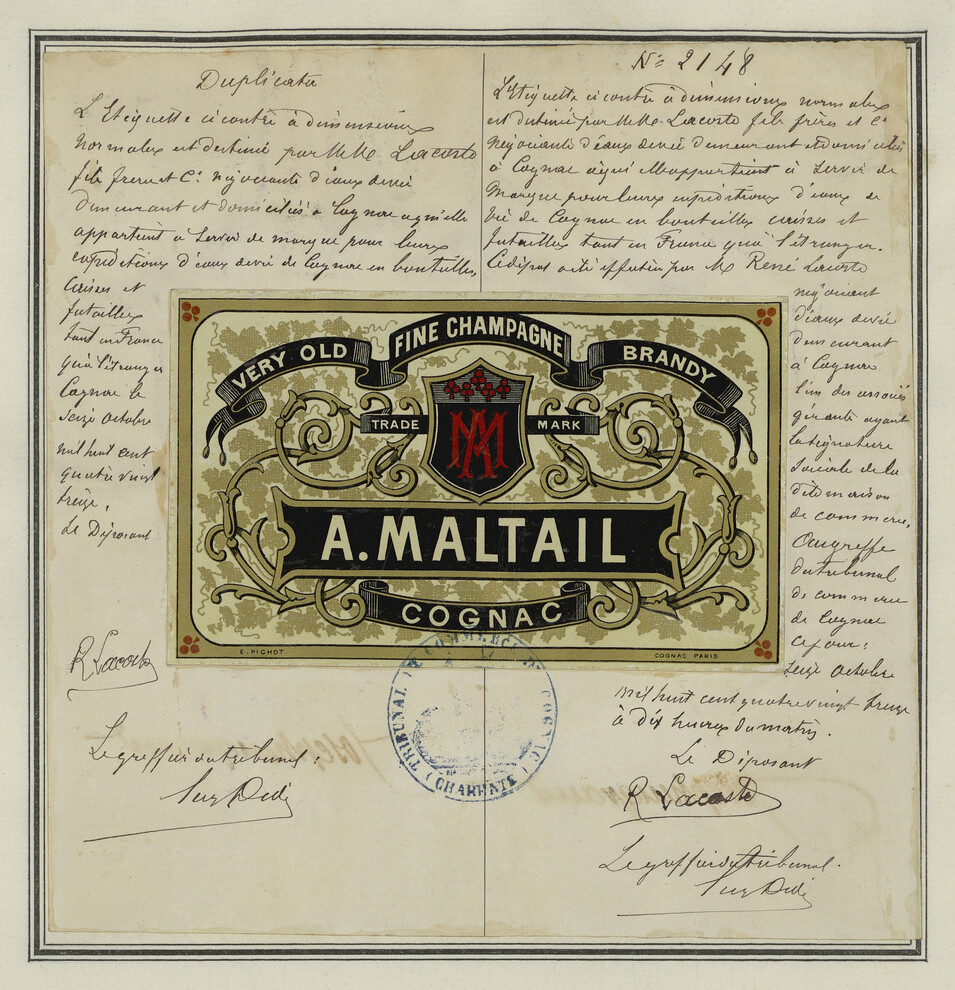 Duplicata
L'Etiquette ci contre à dimensions
normales est destinée par MM. Lacoste
fils frères et Cie négociants d'eaux de vie
demeurant et domiciliés à Cognac a qui elle
appartient à servir de marque pour leurs
expéditions d'eaux de vie de Cognac en bouteilles,
caisses et
futailles
tant en France
qu'à l'étranger
Cognac le
seize Octobre
mil huit cent
quatre vingt
treize,
Le Déposant
R Lacoste
Le greffier du tribunal:
No 2148
L'Etiquette ci contre à dimensions normales
est destinée par MM. Lacoste fils frères et Cie
négociants d'eaux de vie demeurant et domiciliés
à Cognac à qui elle appartient à servir de
marque pour leurs expéditions d'eaux de
vie de Cognac en bouteilles caisses et
futailles tant en France qu'à l'étranger.
Ce dépot a été effectué par M. René Lacoste
négociant
d'eaux de vie
demeurant
à Cognac
l'un des associés
gérants ayant
la signature
sociale de la
dite maison
de commerce,
Au greffe
du tribunal
de commerce
de Cognac
ce jour:
seize Octobre
mil huit cent quatre vingt treize
à dix heures du matin.
Le Déposant
R Lacoste
Le greffier du tribunal.
VERY OLD FINE CHAMPAGNE BRANDY
TRADE MARK
AM
A. MALTAIL
COGNAC
E. PICHOT
COGNAC PARIS
TRIBUNAL DE COMMERCE DE COGNAC
(CHARENTE)